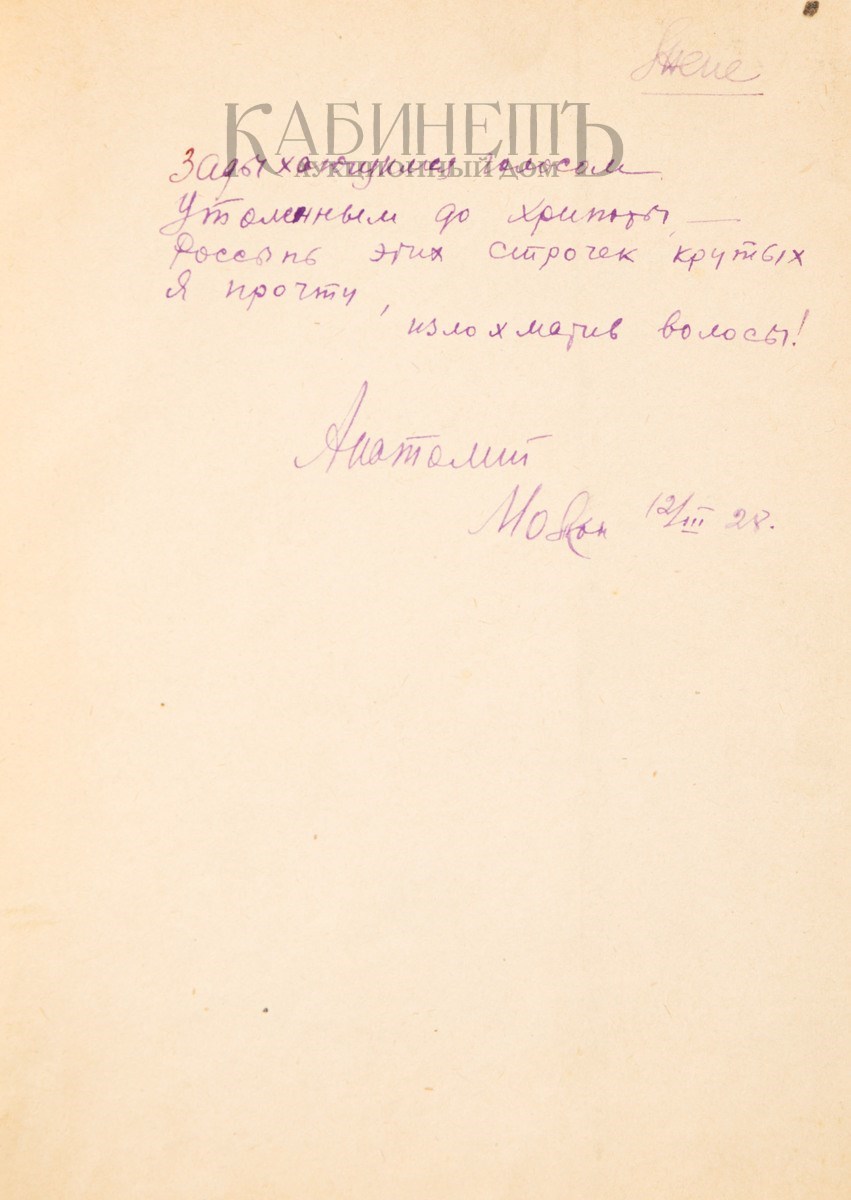 Жене
КАБИНЕТЪ
АУКЦИОННЫЙ ДОМ
Задыхающимся голосом
Утомленным до хрипоты, —
Россыпь этих строчек крутых
Я прочту,
излохматив волосы!
Анатолий
12/III 28.